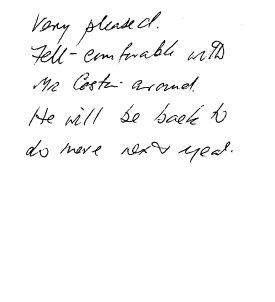 Very pleased.
Felt comfortable with
Mr Costa around.
He will be back to
do more next year.